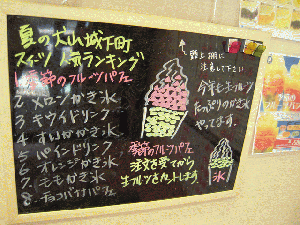 夏の犬山城下町
スイーツ 人気ランキング
1. 季節のフルーツパフェ
2. メロンかき氷
3. キウイドリンク
4. すいかかき氷
5. パインドリンク
6. オレンジかき氷
7. ももかき氷
8. チョコバナナパフェ
頭上棚に
注意して下さい
今年も生フルーツ
たっぷりのかき氷
やってます。
季節のフルーツパフェ
注文を受けてから
生フルーツをカットします
氷